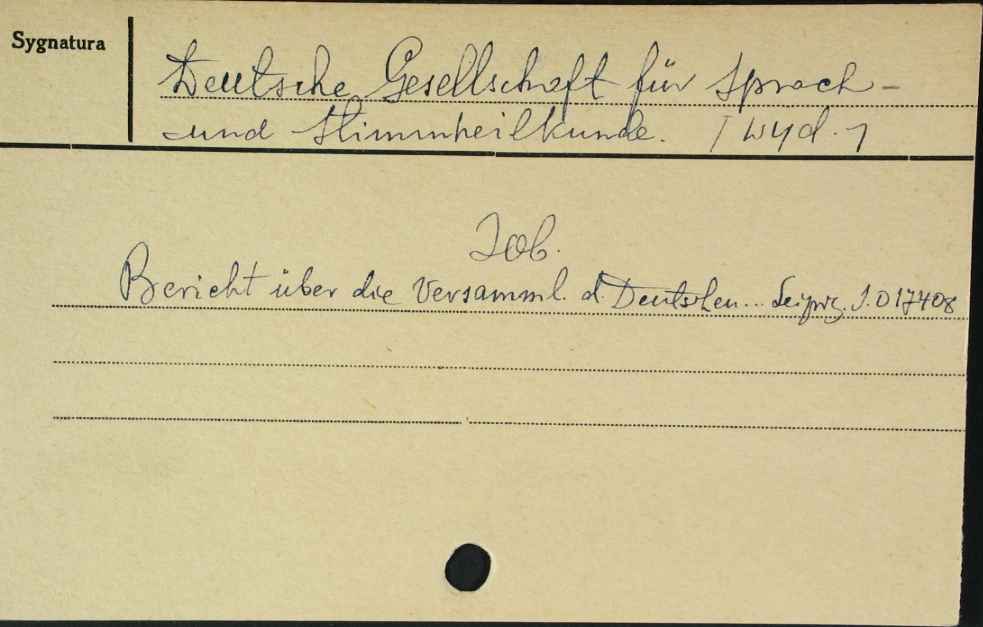 Sygnatura
Deutsche Gesellschaft für Sprach-
und Stimmheilkunde. [wyd.]
Zob.
Bericht über die Versamml. d. Deutschen... Leipzig. J.017408